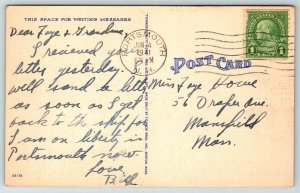 THIS SPACE FOR WRITING MESSAGES
Dear Faye & Grandma,
I recieved your
letter yesterday.
Will send a letter
as soon as I get
back to the ship for
I am on liberty in
Portsmouth now.
Love
Bill
PORTSMOUTH
1941
POST CARD
1
Miss Faye Howe
56 Draper Ave.
Mansfield
Mass.